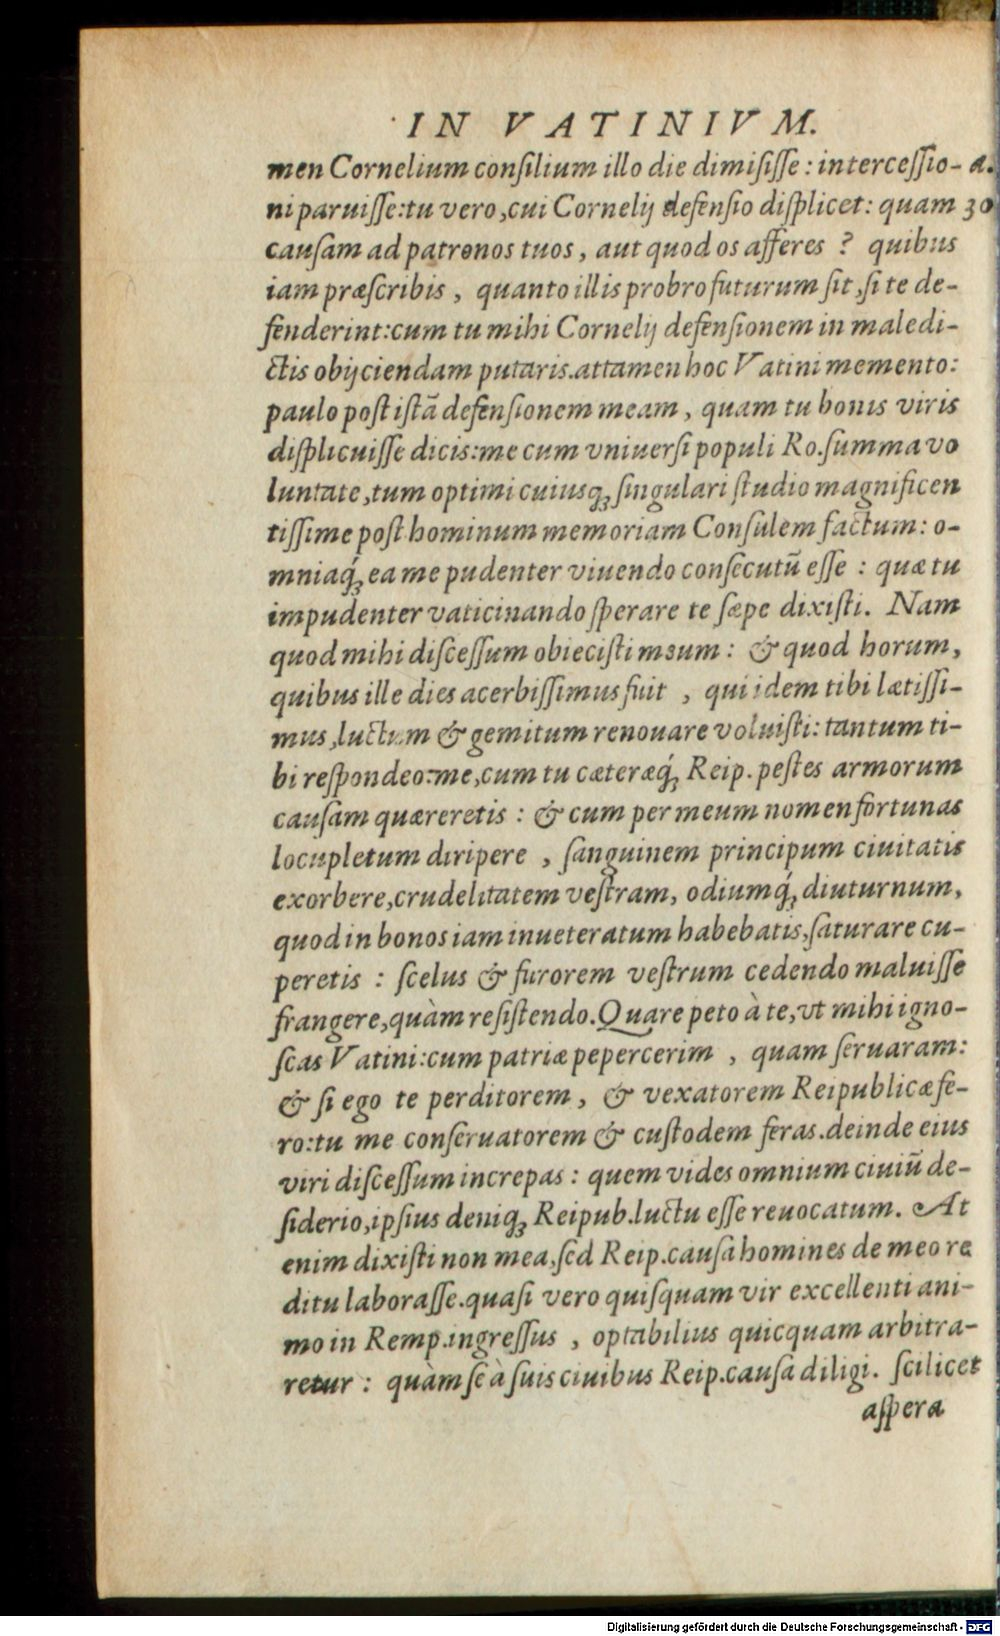 IN VATINIVM.
men Cornelium consilium illo die dimisisse: intercessio- a.
ni paruisse: tu vero, cui Cornelij defensio displicet: quam 30
causam ad patronos tuos, aut quod os afferes? quibus
iam præscribis, quanto illis probro futurum sit, si te de-
fenderint: cum tu mihi Cornelij defensionem in maledi-
ctis obijciendam putaris. attamen hoc Vatini memento:
paulo post istā defensionem meam, quam tu bonis viris
displicuisse dicis: me cum vniuersi populi Ro. summa vo
luntate, tum optimi cuiusq; singulari studio magnificen
tissime post hominum memoriam Consulem factum: o-
mniaq́; ea me pudenter viuendo consecutū esse: quæ tu
impudenter vaticinando sperare te sæpe dixisti. Nam
quod mihi discessum obiecisti meum: & quod horum,
quibus ille dies acerbissimus fuit, qui idem tibi lætissi-
mus, luctum & gemitum renouare voluisti: tantum ti-
bi respondeo: me, cum tu cæteræq́; Reip. pestes armorum
causam quæreretis: & cum per meum nomen fortunas
locupletum diripere, sanguinem principum ciuitatis
exorbere, crudelitatem vestram, odiumq́; diuturnum,
quod in bonos iam inueteratum habebatis, saturare cu-
peretis: scelus & furorem vestrum cedendo maluisse
frangere, quàm resistendo. Quare peto à te, vt mihi igno-
scas Vatini: cum patriæ pepercerim, quam seruaram:
& si ego te perditorem, & vexatorem Reipublicæ fe-
ro: tu me conseruatorem & custodem feras. deinde eius
viri discessum increpas: quem vides omnium ciuiū de-
siderio, ipsius deniq; Reipub. luctu esse reuocatum. At
enim dixisti non mea, sed Reip. causa homines de meo re
ditu laborasse. quasi vero quisquam vir excellenti ani-
mo in Remp. ingressus, optabilius quicquam arbitra-
retur: quàm se à suis ciuibus Reip. causa diligi. scilicet
aspera
Digitalisierung gefördert durch die Deutsche Forschungsgemeinschaft - DFG